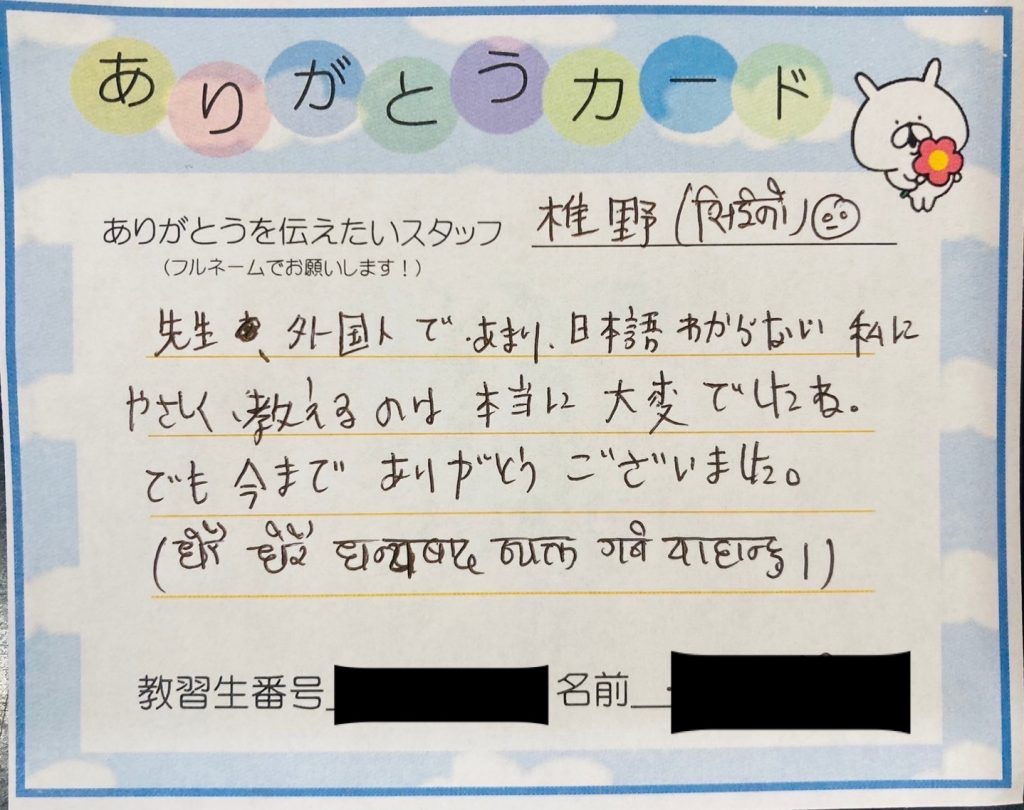 ありがとうカード
ありがとうを伝えたいスタッフ 椎野 (सिइनो)
(フルネームでお願いします!)
先生、外国人で、あまり、日本語わからない 私に
やさしく、教えるのは 本当に 大変でしたね。
でも 今まで ありがとう ございました。
(धेरै धेरै धन्यवाद गर्न चाहान्छु।)
教習生番号 名前